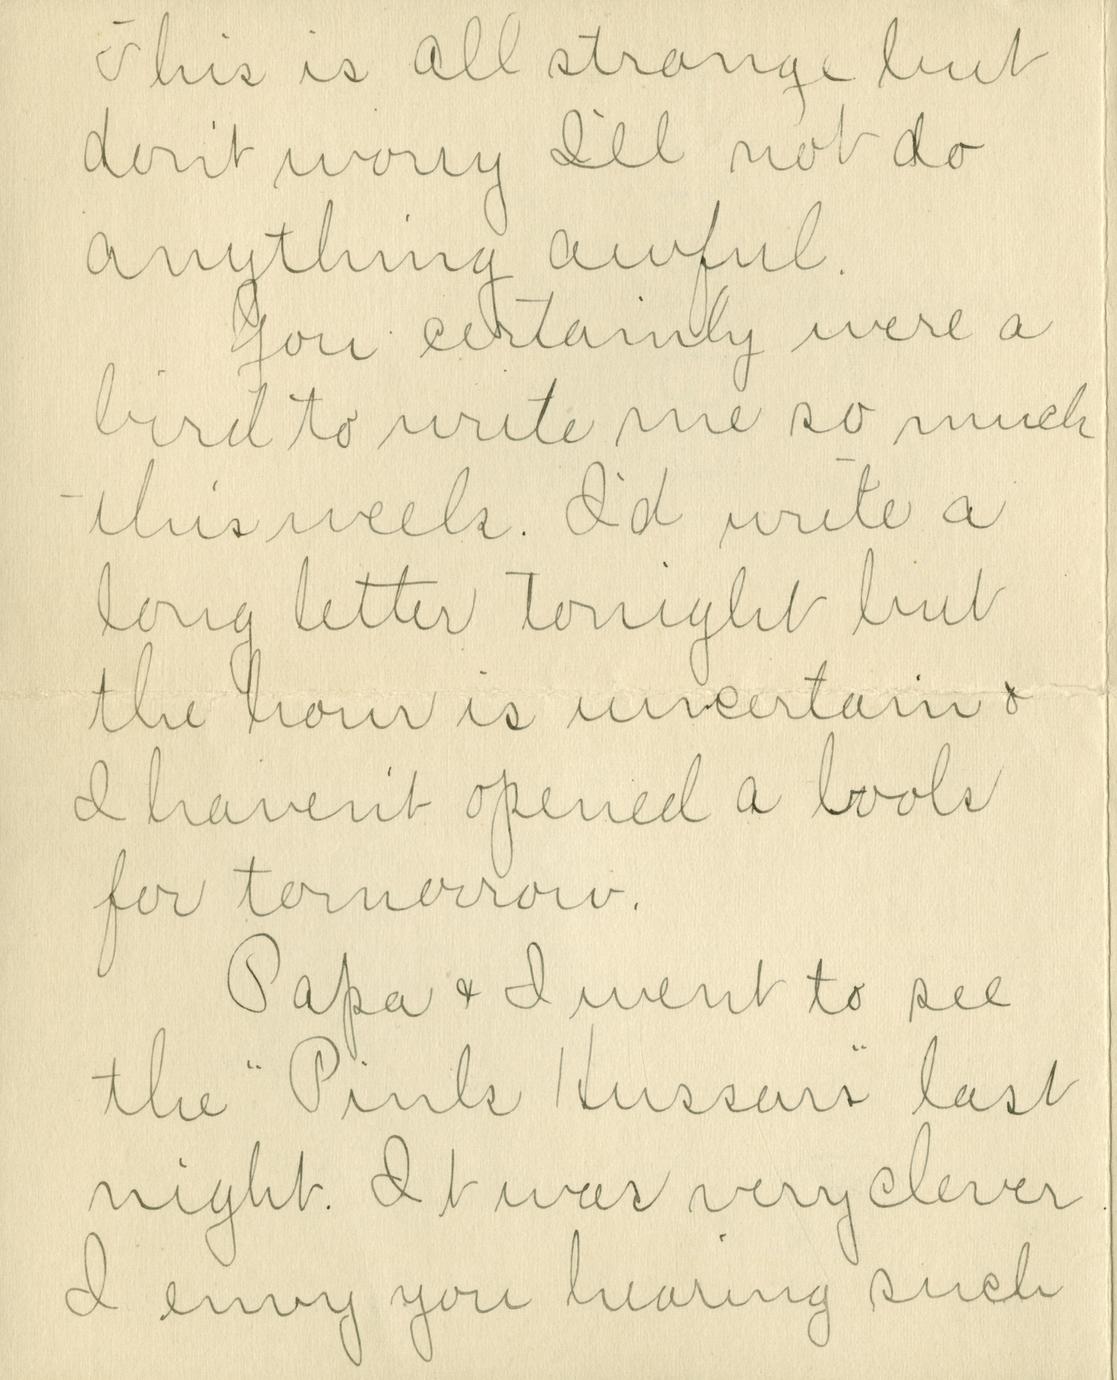 This is all strange but
don't worry I'll not do
anything awful.
You certainly were a
bird to write me so much
this week. I'd write a
long letter tonight but
the hour is uncertain &
I haven't opened a book
for tomorrow.
Papa & I went to see
the "Pink Hussars" last
night. It was very clever.
I envy you hearing such